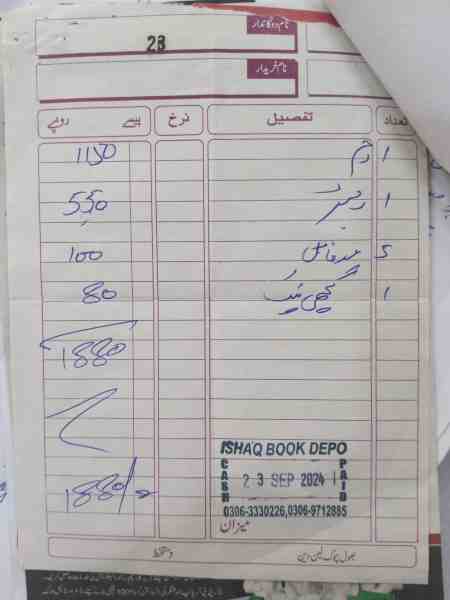 نام دوکاندار
23
نام خریدار
تعداد تفصیل نرخ پیسے روپے
1 رم 1150
1 رجسٹر 550
5 فائل 100
1 80
1880
1880/=
ISHAQ BOOK DEPO
CASH 23 SEP 2024 PAID
0306-3330226,0306-9712885
میزان
بھول چوک لین دین دستخط